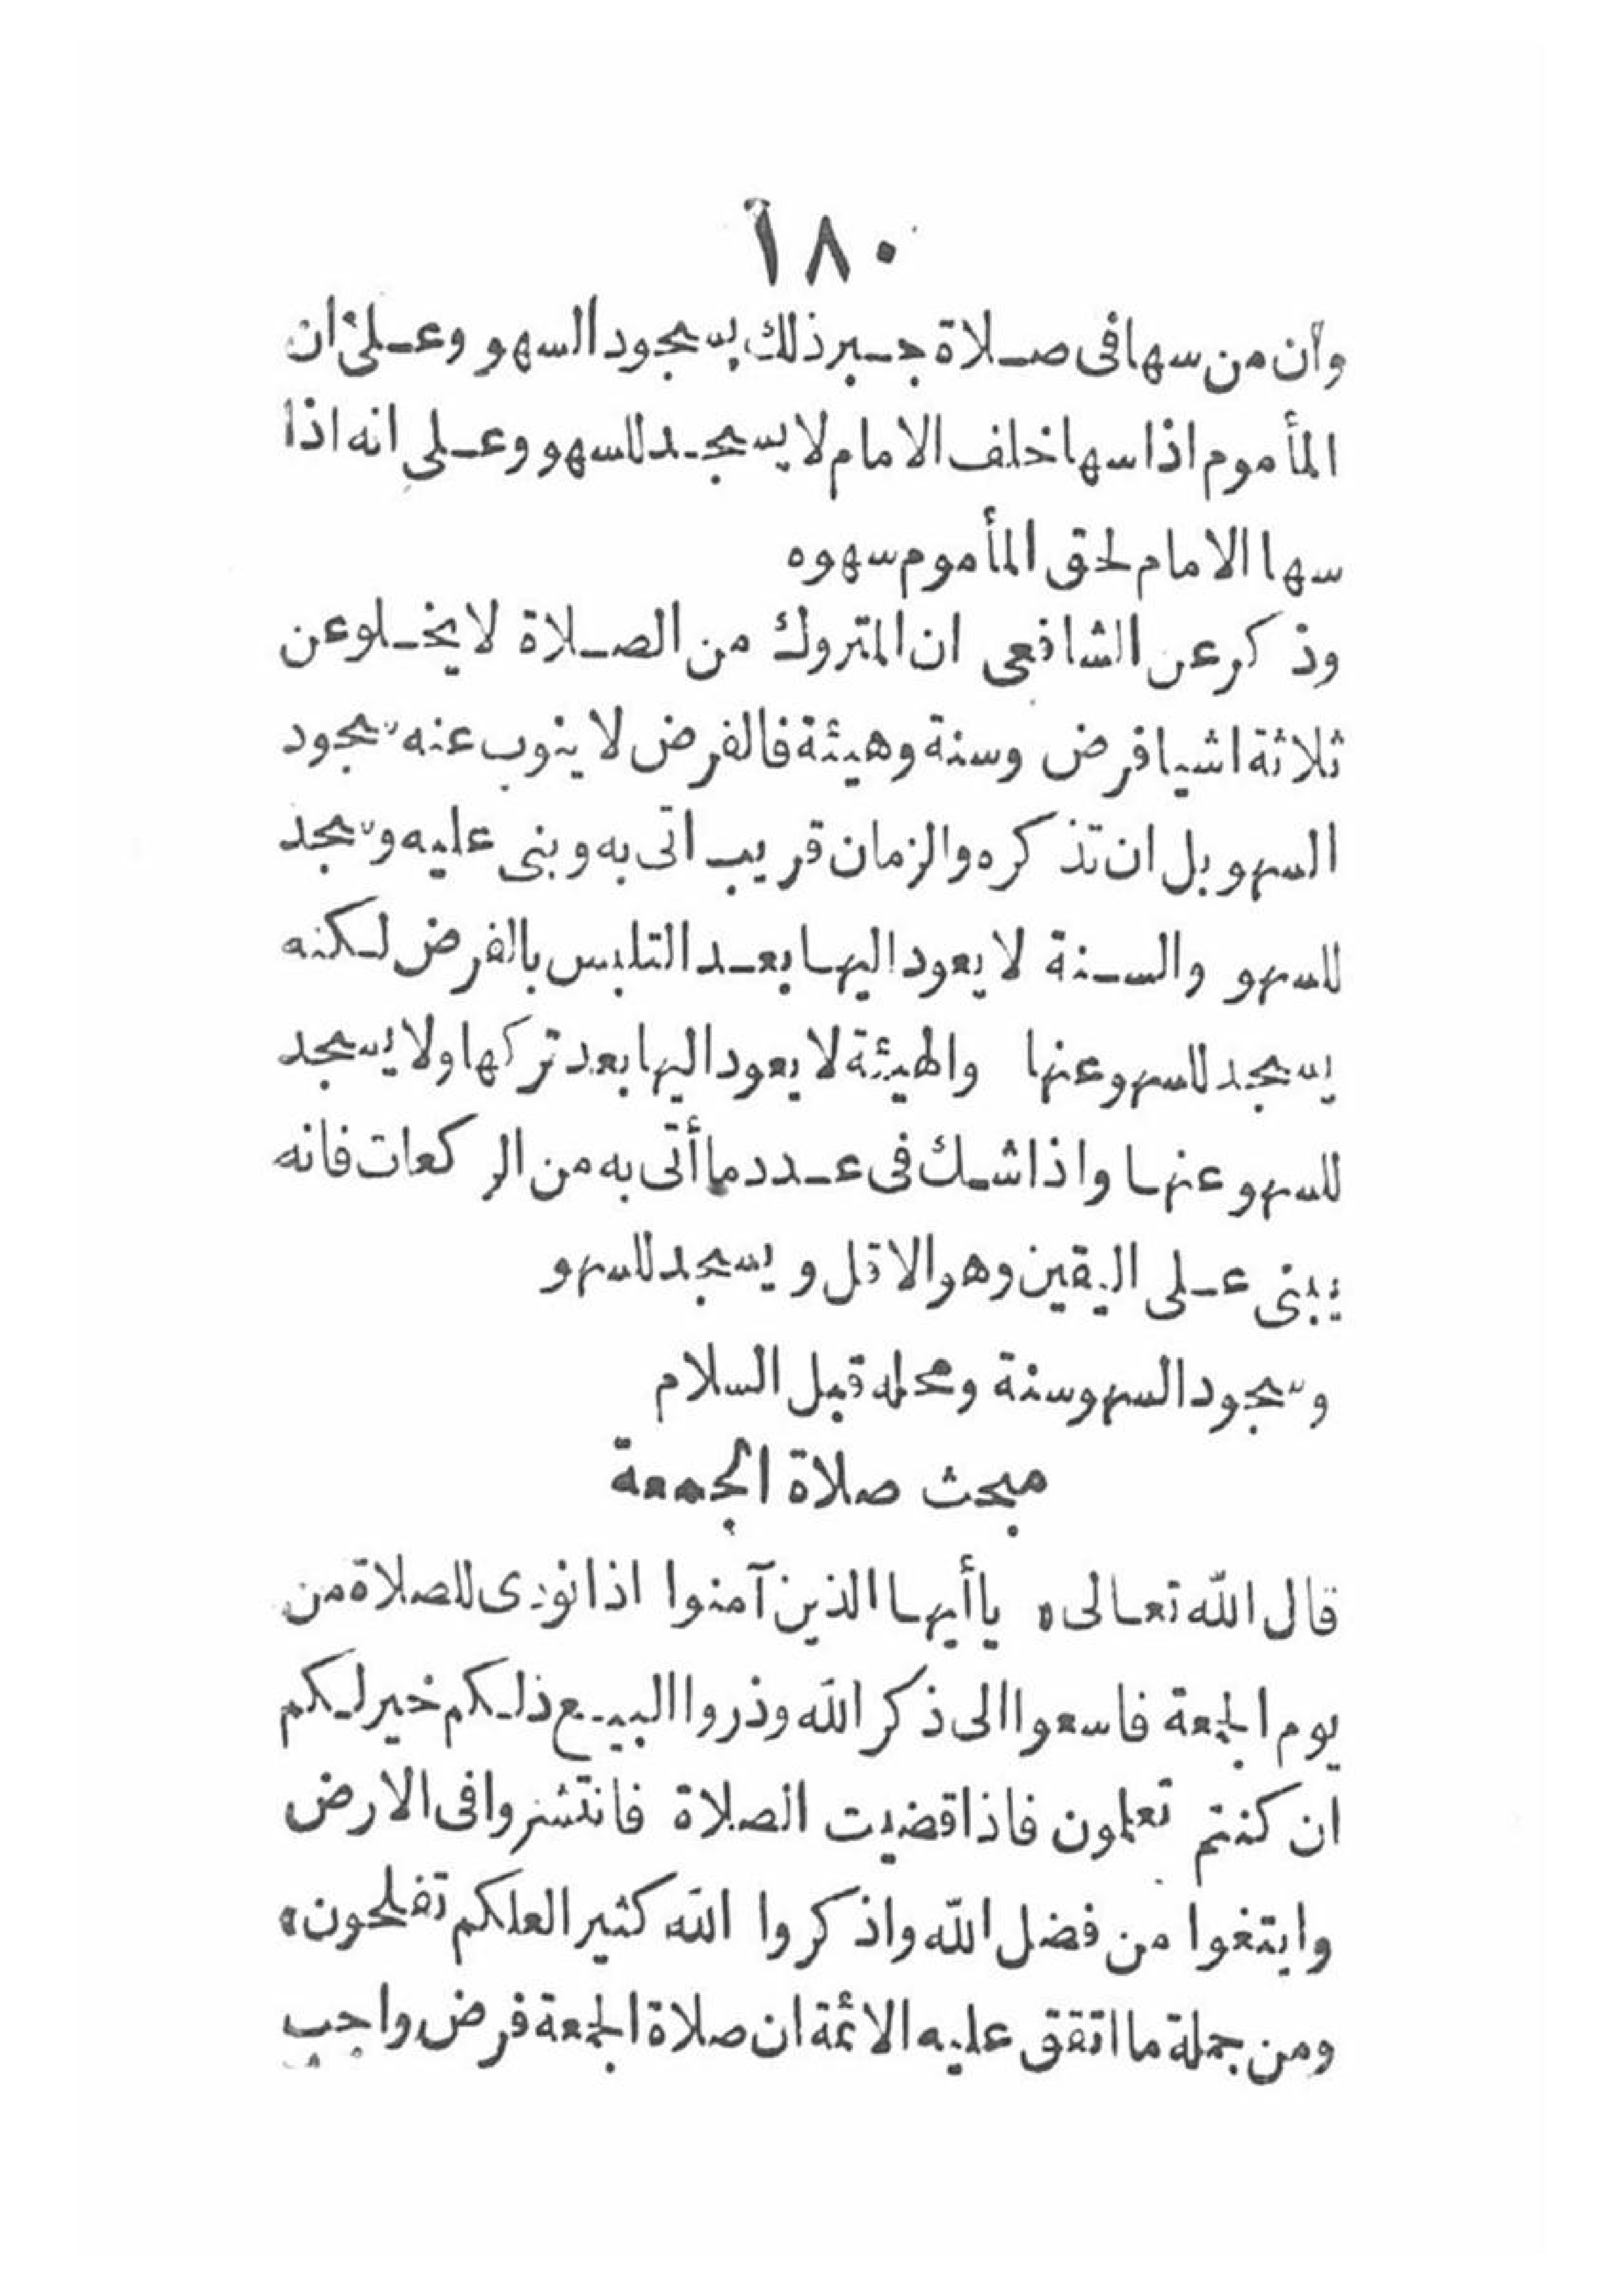 ١٨٠
وأن من سها فى صلاة جبر ذلك بسجود السهو وعلى ان
المأموم اذا سها خلف الامام لا يسجد للسهو وعلى انه اذا
سها الامام لحق المأموم سهوه
وذكر عن الشافعى ان المتروك من الصلاة لا يخلو عن
ثلاثة اشيا فرض وسنة وهيئة فالفرض لا ينوب عنه سجود
السهو بل ان تذكره والزمان قريب اتى به وبنى عليه وسجد
للسهو والسنة لا يعود اليها بعد التلبس بالفرض لكنه
يسجد للسهو عنها والهيئة لا يعود اليها بعد تركها ولا يسجد
للسهو عنها واذا شك فى عدد ما أتى به من الركعات فانه
يبنى على اليقين وهو الاقل ويسجد للسهو
وسجود السهو سنة ومحله قبل السلام
مبحث صلاة الجمعة
قال الله تعالى، يا أيها الذين آمنوا اذا نودى للصلاة من
يوم الجمعة فاسعوا الى ذكر الله وذروا البيع ذلكم خير لكم
ان كنتم تعلمون فاذا قضيت الصلاة فانتشروا فى الارض
وابتغوا من فضل الله واذكروا الله كثيرا لعلكم تفلحون،
ومن جملة ما اتفق عليه الائمة ان صلاة الجمعة فرض واجب